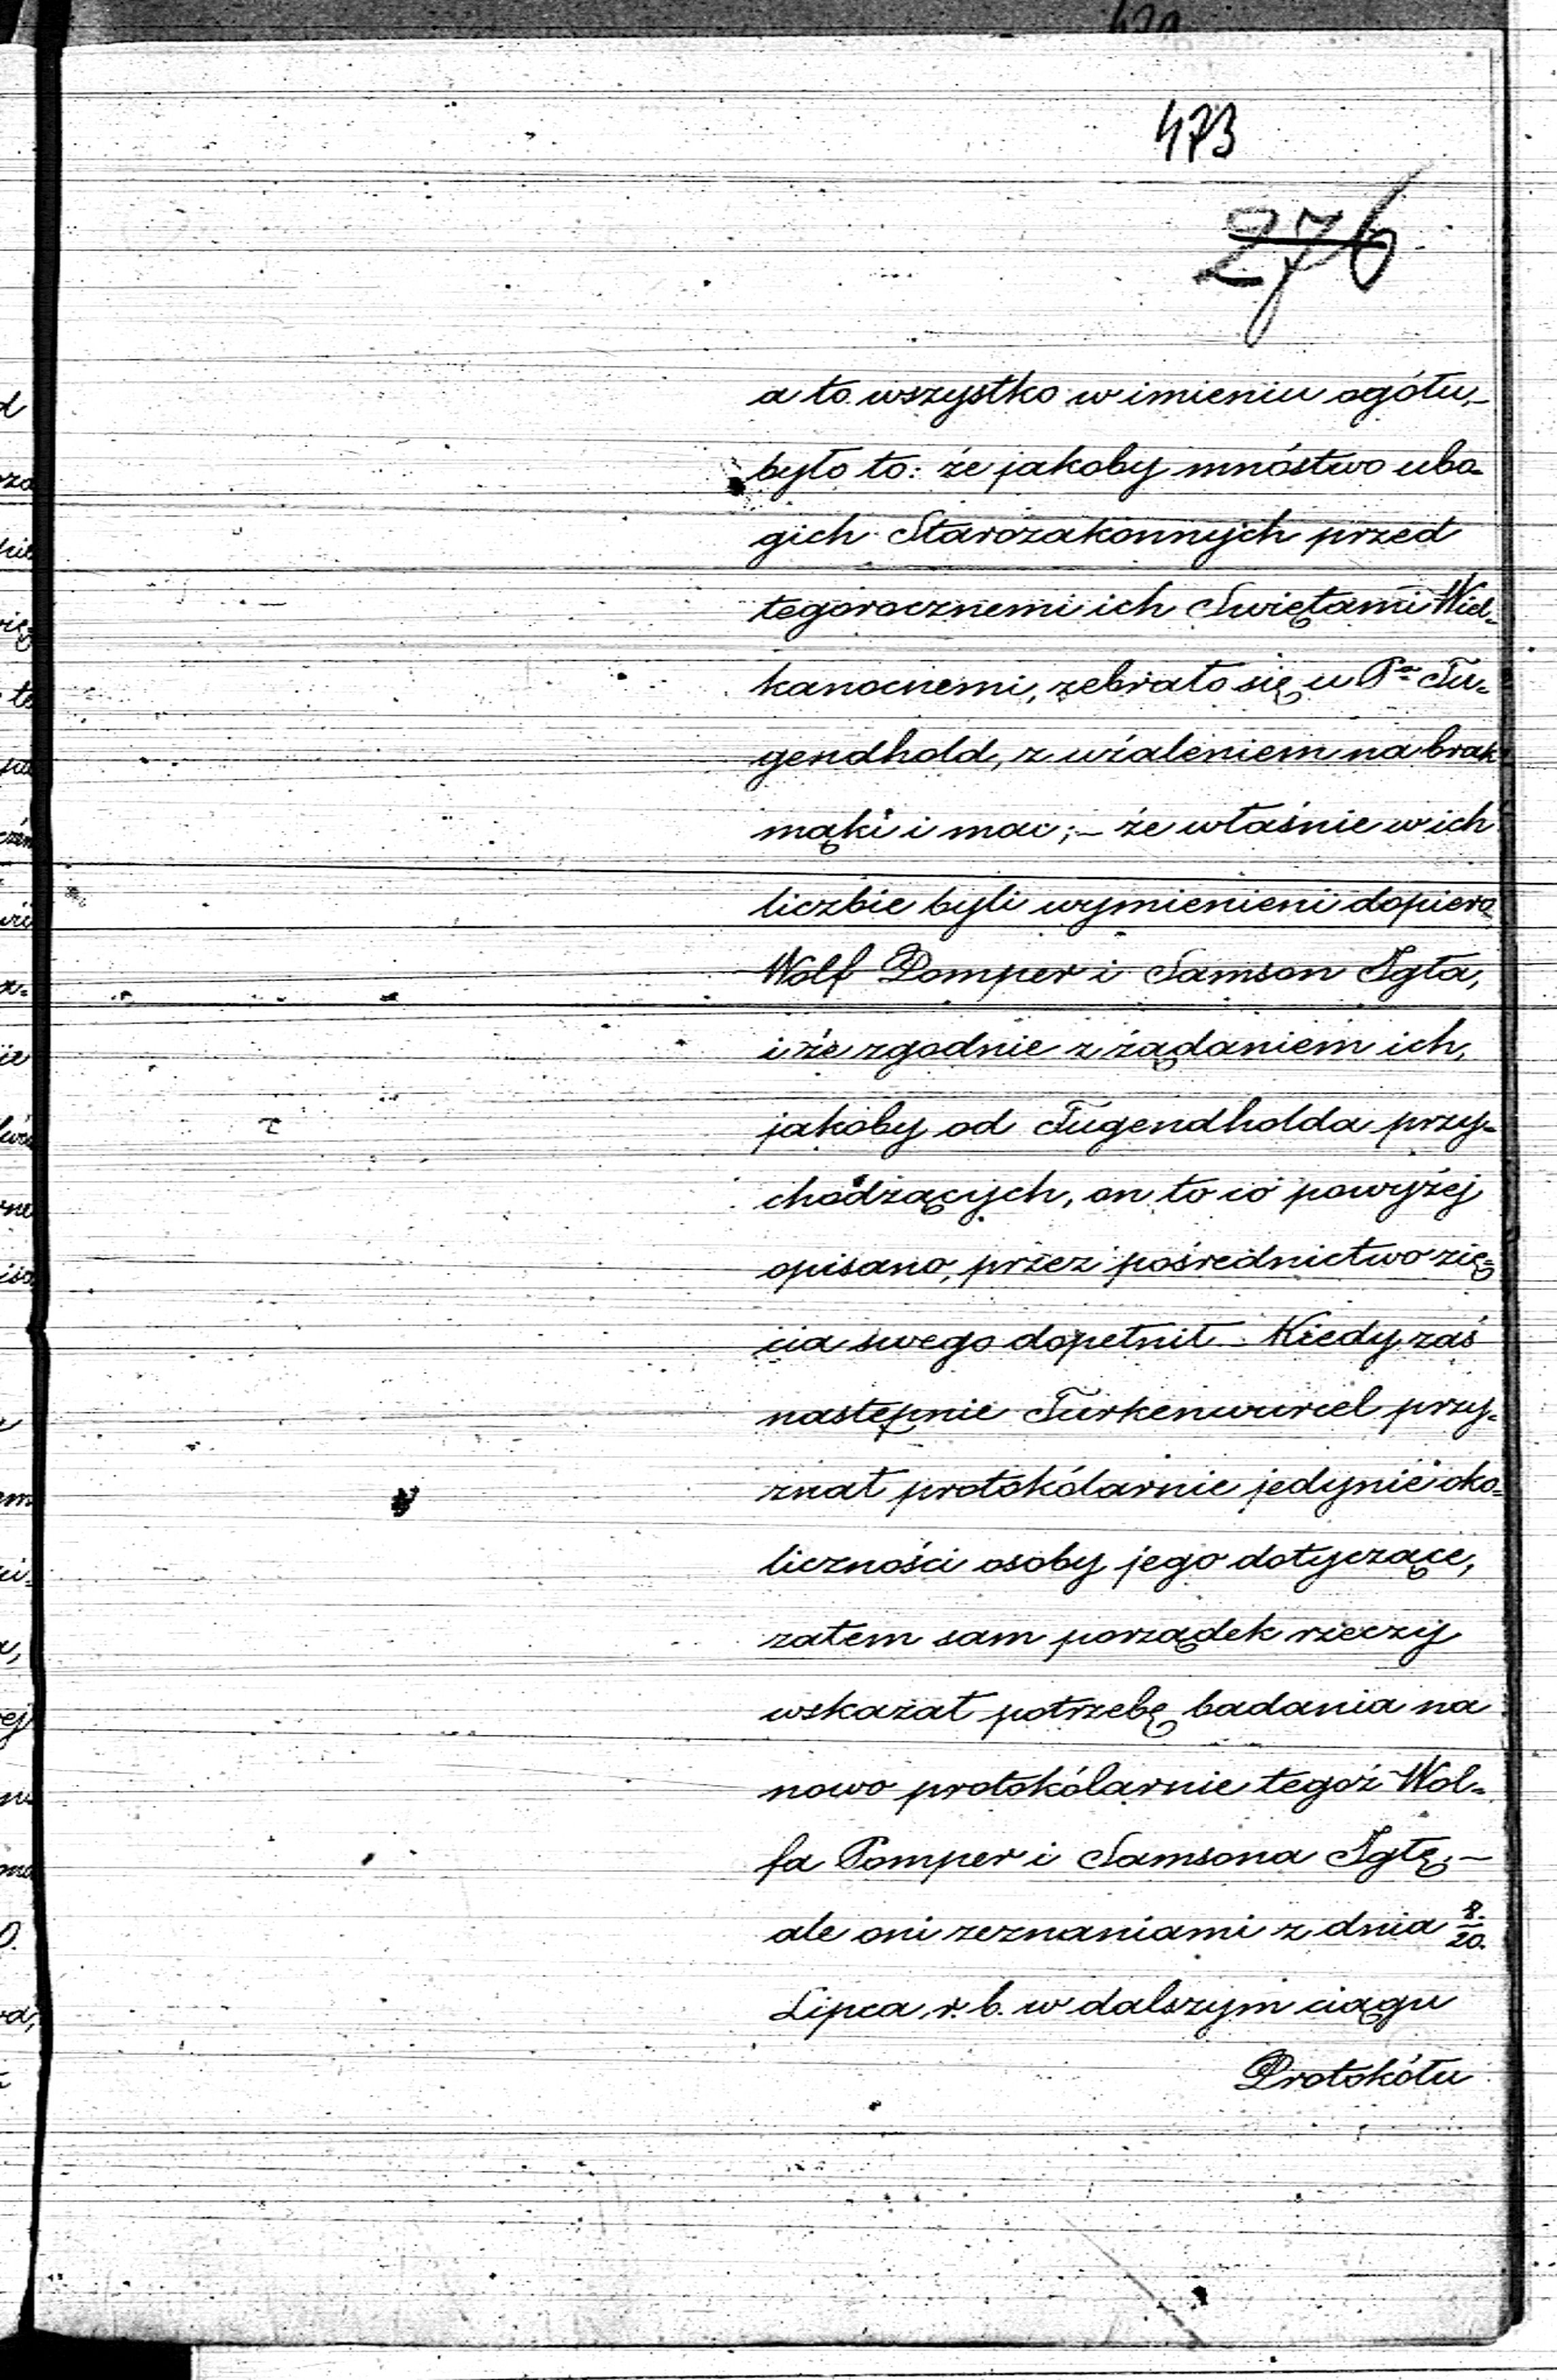 473
276
a to wszystko w imieniu ogółu,—
było to: że jakoby mnóstwo ubo-
gich Starozakonnych przed
tegorocznemi ich Swiętami Wiel-
kanocnemi, zebrało się u Pa Tu-
gendhold, z użaleniem na brak
mąki i mac;— że właśnie w ich
liczbie byli wymienieni dopiero
Wolf Pomper i Samson Igła,
i że zgodnie z żądaniem ich,
jakoby od Tugendholda przy-
chodzących, on to co powyżej
opisano, przez pośrednictwo zię-
cia swego dopełnił – Kiedy zaś
następnie Turkenwurcel przy-
znał protokólarnie jedynie oko-
liczności osoby jego dotyczące,
zatem sam porządek rzeczy
wskazał potrzebę badania na
nowo protokólarnie tegoż Wol-
fa Pomper i Samsona Igłę;—
ale oni zeznaniami z dnia 8/20
Lipca r. b. w dalszym ciągu
Protokółu